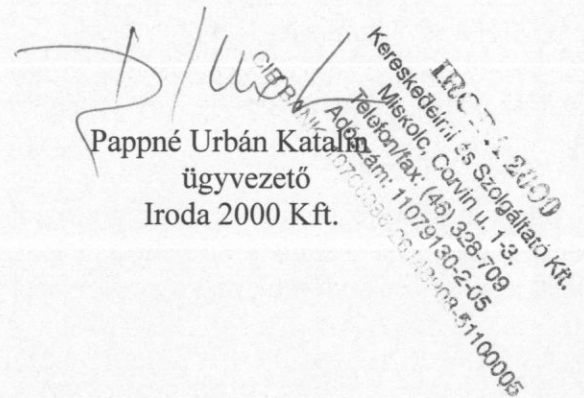 Pappné Urbán Katalin
ügyvezető
Iroda 2000 Kft.
IRODA 2000
Kereskedelmi és Szolgáltató Kft.
Miskolc, Corvin u. 1-3.
Telefon/fax: (46) 328-709
Adószám: 11079130-2-05
CIB BANK
51100005